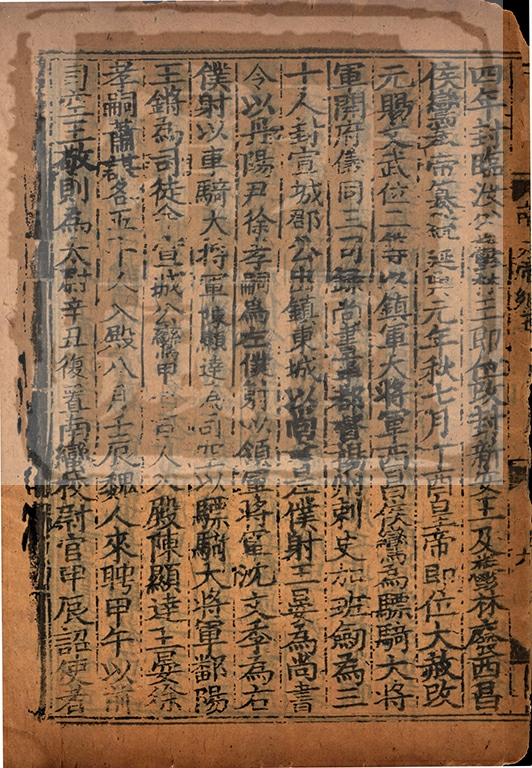 四年封臨汝公鬱林王即位改封新安王及鬱林廢西昌
侯鸞奉帝纂統延興元年秋七月丁酉皇帝即位大赦改
元賜文武位二等以鎮軍大將軍西昌侯鸞為驃騎大將
軍開府儀同三司録尚書事都督揚州刺史加班劒為三
十人封宣城郡公出鎮東城以尚書左僕射王晏為尚書
令以丹陽尹徐孝嗣為左僕射以領軍將軍沈文季為右
僕射以車騎大將軍陳顯達為司空以驃騎大將軍鄱陽
王鏘為司徒命宣城公鸞甲仗百人入殿陳顯達王晏徐
孝嗣蕭諶各五十人入殿八月壬辰魏人來聘甲午以前
司空王敬則為太尉辛丑復置南蠻校尉官甲辰詔使者